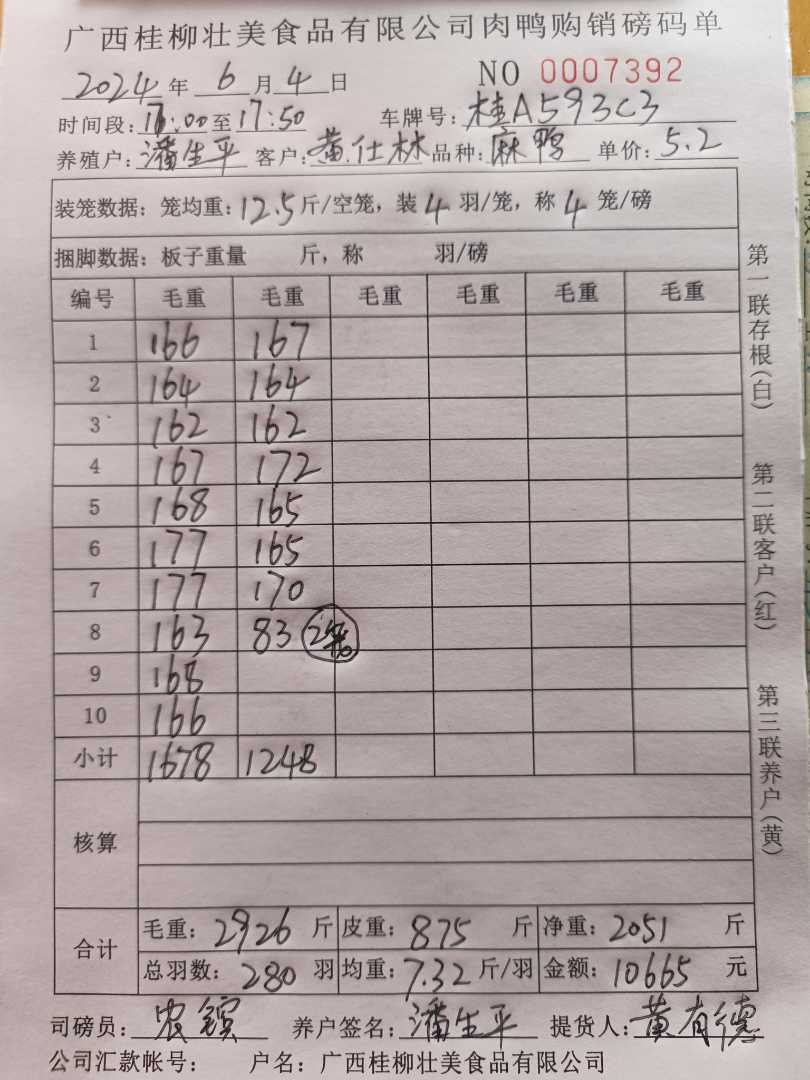 广西桂柳壮美食品有限公司肉鸭购销磅码单
2024年6月4日 NO 0007392
时间段:17:00至17:50 车牌号:桂A593C3
养殖户:潘生平 客户:黄仕林 品种:麻鸭 单价:5.2
装笼数据:笼均重:12.5斤/空笼,装4羽/笼,称4笼/磅
捆脚数据:板子重量 斤,称 羽/磅
编号 毛重 毛重 毛重 毛重 毛重 毛重
1 166 167
2 164 164
3 162 162
4 167 172
5 168 165
6 177 165
7 177 170
8 163 83 2笼
9 168
10 166
小计 1678 1248
核算
合计 毛重:2926斤 皮重:875斤 净重:2051斤
总羽数:280羽 均重:7.32斤/羽 金额:10665元
司磅员:农镔 养户签名:潘生平 提货人:黄有德
公司汇款帐号: 户名:广西桂柳壮美食品有限公司
第一联存根(白)
第二联客户(红)
第三联养户(黄)